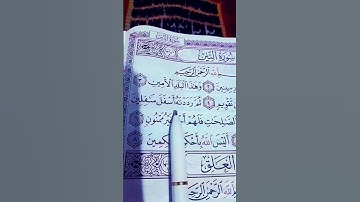 سُورَةُ التِّينِ
اللَّهِ الرَّحْمَٰنِ الرَّحِيمِ
وَهَٰذَا الْبَلَدِ الْأَمِينِ
تَقْوِيمٍ ثُمَّ رَدَدْنَٰهُ أَسْفَلَ سَٰفِلِينَ
الصَّٰلِحَٰتِ فَلَهُمْ أَجْرٌ غَيْرُ مَمْنُونٍ
أَلَيْسَ اللَّهُ بِأَحْكَمِ الْحَٰكِمِينَ
الْعَلَقِ
اللَّهِ الرَّحْمَٰنِ الرَّحِيمِ